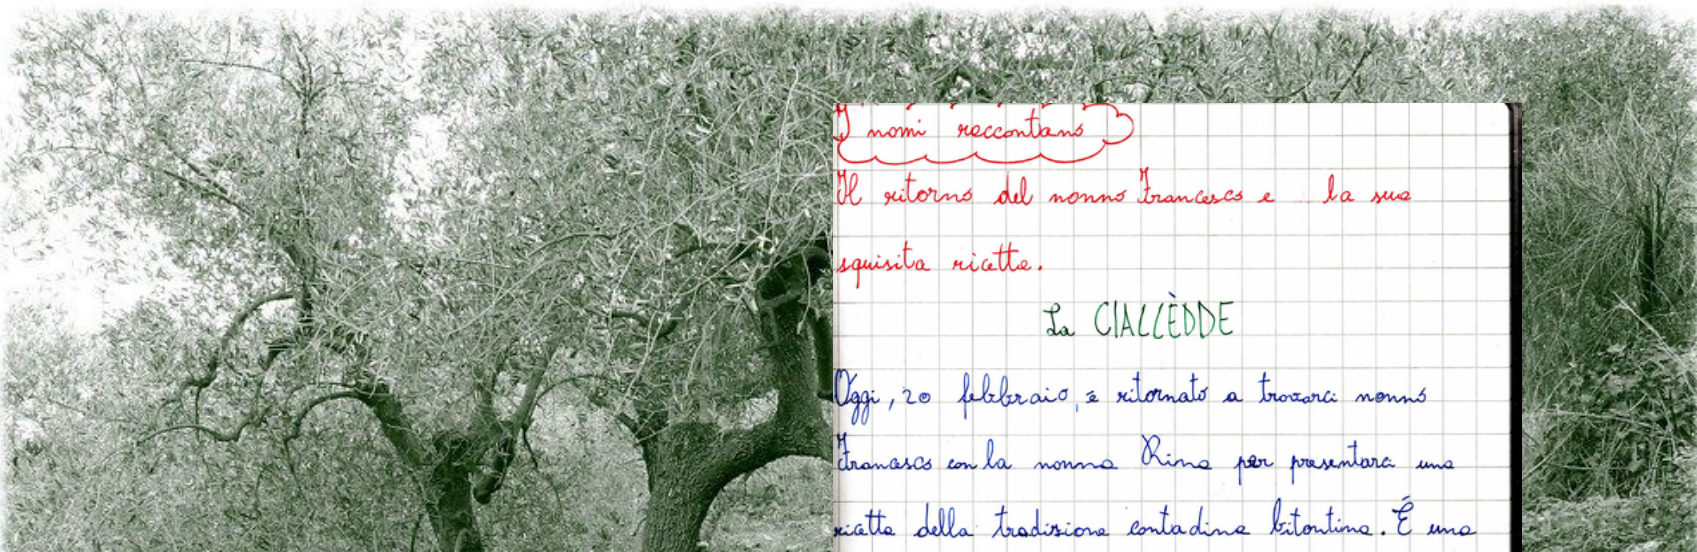 I nomi raccontano
Il ritorno del nonno Francesco e la sua
squisita ricetta.
La CIALLÈDDE
Oggi, 20 febbraio, è ritornato a trovarci nonno
Francesco con la nonna Rina per presentare una
ricetta della tradizione contadina bitontina. É una